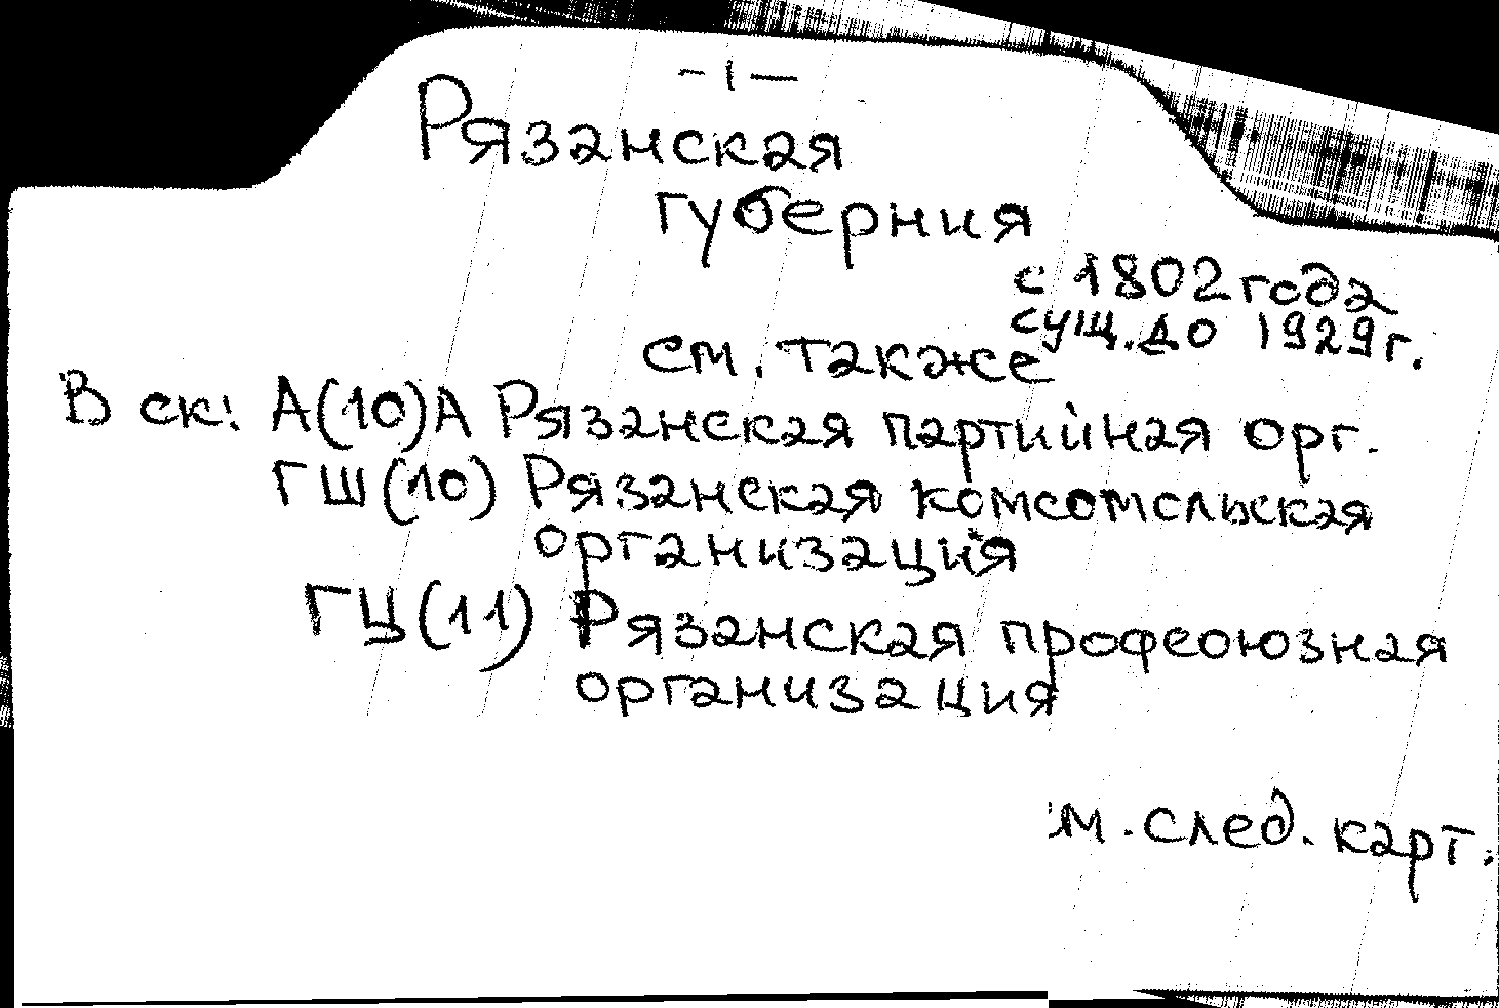 - 1 -
Рязанская
губерния
с 1802 года
сущ. до 1929 г.
см. также
В ск! А(10)А Рязанская партийная орг.
ГШ(10) Рязанская комсомсльская
организация
ГЦ(11) Рязанская профсоюзная
организация
м. след. карт.